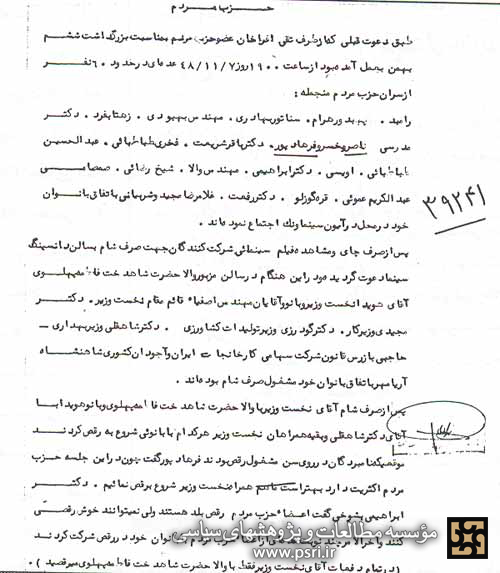 حزب مردم
طبق دعوت قبلی که از طرف تقی افراخان عضو حزب مردم بمناسبت بزرگداشت ششم
بهمن بعمل آمده بود از ساعت ۱۹۰۰ روز ۴۸/۱۱/۷ عده ای در حدود ۶۰ نفر
از سران حزب مردم منجمله :
رامبد . سپهبد ورهرام . سناتور بهادری . مهندس بهبودی . زهتابفرد . دکتر
مدرسی ناصر و خسرو فرهادپور . دکتر باقر شریعت . فخری طباطبائی . عبدالحسین
طباطبائی . اویسی . دکتر ابراهیمی . مهندس والا . شیخ رضائی . صمصامی
عبدالکریم عموئی . قره گوزلو . دکتر رفعت . غلامرضا مجید و شریمانی باتفاق بانوان
خود در محل درآمون سینمامونک اجتماع نموده اند .
۳۹۲۴۱
پس از صرف چای و مشاهده فیلم سینمائی شرکت کنندگان جهت صرف شام بسالن دانسینگ
سینما دعوت گردیده بود در این هنگام در سالن مزبور والا حضرت شاهدخت فاطمه پهلوی
آقای هویدا نخست وزیر و بانو و آقایان مهندس اصفیاء قائم مقام نخست وزیر . دکتر
مجیدی وزیر کار . دکتر گودرزی وزیر تولیدات کشاورزی . دکتر شاهقلی وزیر بهداری -
حاجبی بازرس قانون شرکت سهامی کارخانجات ایران و آجودان کشوری شاهنشاه
آریامهر باتفاق بانوان خود مشغول صرف شام بوده اند .
پس از صرف شام آقای نخست وزیر با والا حضرت شاهدخت فاطمه پهلوی و بانو هویدا با
آقای دکتر شاهقلی و بقیه همراهان نخست وزیر هر کدام با بانوئی شروع به رقص کردند
موقعیکه نامبردگان در روی سن مشغول رقص بودند فرهادپور گفت چون در این جلسه حزب
مردم اکثریت دارد بهتر است ما هم همراه نخست وزیر شروع برقص نمائیم . دکتر
ابراهیمی بشوخی گفت اعضاء حزب مردم رقص بلد هستند ولی نمیتوانند خوش رقصی
کنند و اخر الامر چند نفر از اعضا حزب مردم با بانوان خود در رقص شرکت کردند
(در تمام دفعات آقای نخست وزیر فقط با والا حضرت شاهدخت فاطمه پهلوی میرقصید)
مؤسسه مطالعات و پژوهشهای سیاسی
www.psri.ir